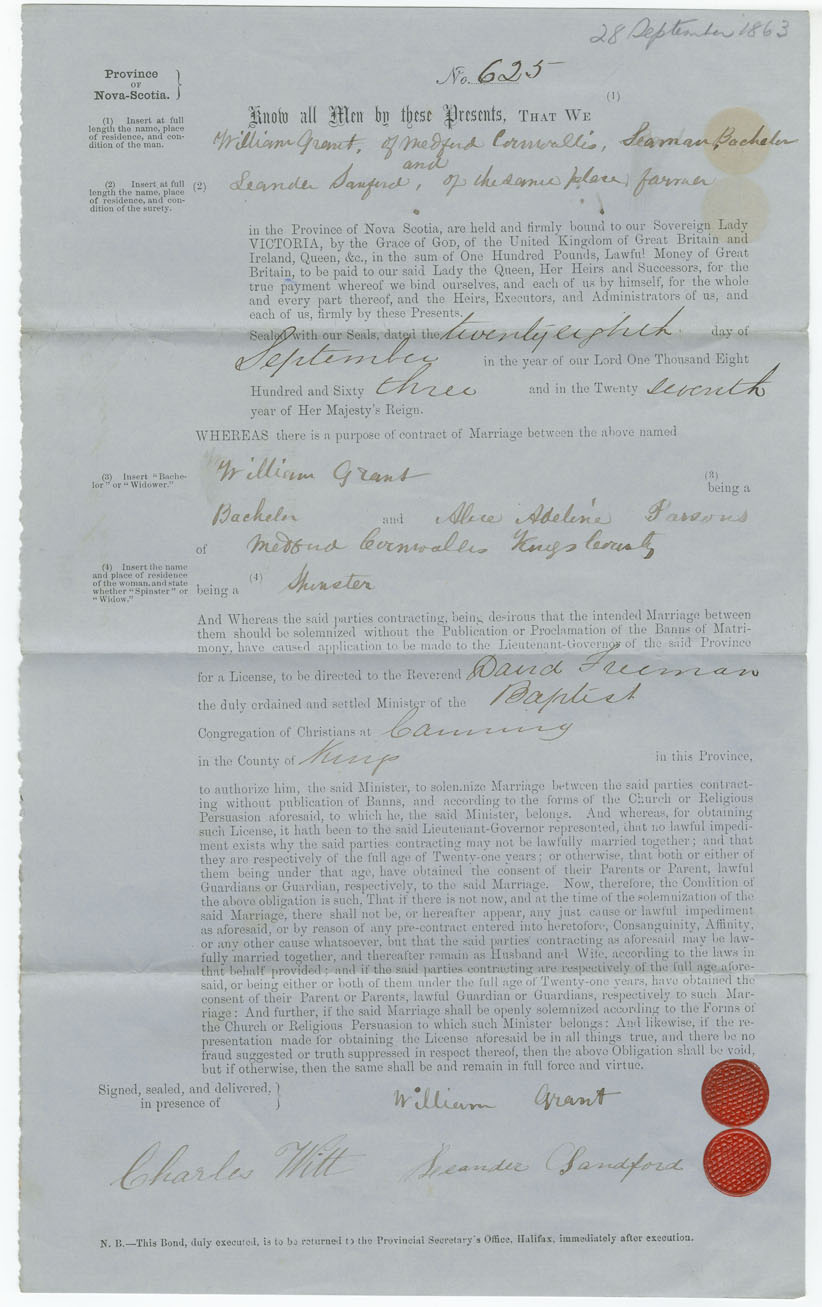 28 September 1863
Province
OF
Nova-Scotia.
No. 625
(1)
Know all Men by these Presents, THAT WE
(1) Insert at full
length the name, place
of residence, and con-
dition of the man.
William Grant, of Medford Cornwallis, Seaman, Bachelor
and
(2) Insert at full
length the name, place
of residence, and con-
dition of the surety.
(2) Leander Sanford, of the same place, farmer
in the Province of Nova Scotia, are held and firmly bound to our Sovereign Lady
VICTORIA, by the Grace of GOD, of the United Kingdom of Great Britain and
Ireland, Queen, &c., in the sum of One Hundred Pounds, Lawful Money of Great
Britain, to be paid to our said Lady the Queen, Her Heirs and Successors, for the
true payment whereof we bind ourselves, and each of us by himself, for the whole
and every part thereof, and the Heirs, Executors, and Administrators of us, and
each of us, firmly by these Presents.
Sealed with our Seals, dated the twenty eighth day of
September in the year of our Lord One Thousand Eight
Hundred and Sixty three and in the Twenty seventh
year of Her Majesty's Reign.
WHEREAS there is a purpose of contract of Marriage between the above named
(3) Insert "Bache-
lor" or "Widower."
William Grant (3)
being a
Bachelor and Alice Adeline Parsons
of Medford Cornwallis Kings County
(4) Insert the name
and place of residence
of the woman, and state
whether "Spinster" or
"Widow."
being a (4) Spinster
And Whereas the said parties contracting, being desirous that the intended Marriage between
them should be solemnized without the Publication or Proclamation of the Banns of Matri-
mony, have caused application to be made to the Lieutenant-Governor of the said Province
for a License, to be directed to the Reverend David Freeman
the duly ordained and settled Minister of the Baptist
Congregation of Christians at Canning
in the County of Kings in this Province,
to authorize him, the said Minister, to solemnize Marriage between the said parties contract-
ing without publication of Banns, and according to the forms of the Church or Religious
Persuasion aforesaid, to which he, the said Minister, belongs. And whereas, for obtaining
such License, it hath been to the said Lieutenant-Governor represented, that no lawful impedi-
ment exists why the said parties contracting may not be lawfully married together; and that
they are respectively of the full age of Twenty-one years; or otherwise, that both or either of
them being under that age, have obtained the consent of their Parents or Parent, lawful
Guardians or Guardian, respectively, to the said Marriage. Now, therefore, the Condition of
the above obligation is such, That if there is not now, and at the time of the solemnization of the
said Marriage, there shall not be, or hereafter appear, any just cause or lawful impediment
as aforesaid, or by reason of any pre-contract entered into heretofore, Consanguinity, Affinity,
or any other cause whatsoever, but that the said parties contracting as aforesaid may be law-
fully married together, and thereafter remain as Husband and Wife, according to the laws in
that behalf provided; and if the said parties contracting are respectively of the full age afore-
said, or being either or both of them under the full age of Twenty-one years, have obtained the
consent of their Parent or Parents, lawful Guardian or Guardians, respectively to such Mar-
riage: And further, if the said Marriage shall be openly solemnized according to the Forms of
the Church or Religious Persuasion to which such Minister belongs: And likewise, if the re-
presentation made for obtaining the License aforesaid be in all things true, and there be no
fraud suggested or truth suppressed in respect thereof, then the above Obligation shall be void,
but if otherwise, then the same shall be and remain in full force and virtue.
Signed, sealed, and delivered,
in presence of
William Grant
Charles Witt Leander Sandford
N. B.—This Bond, duly executed, is to be returned to the Provincial Secretary's Office, Halifax, immediately after execution.